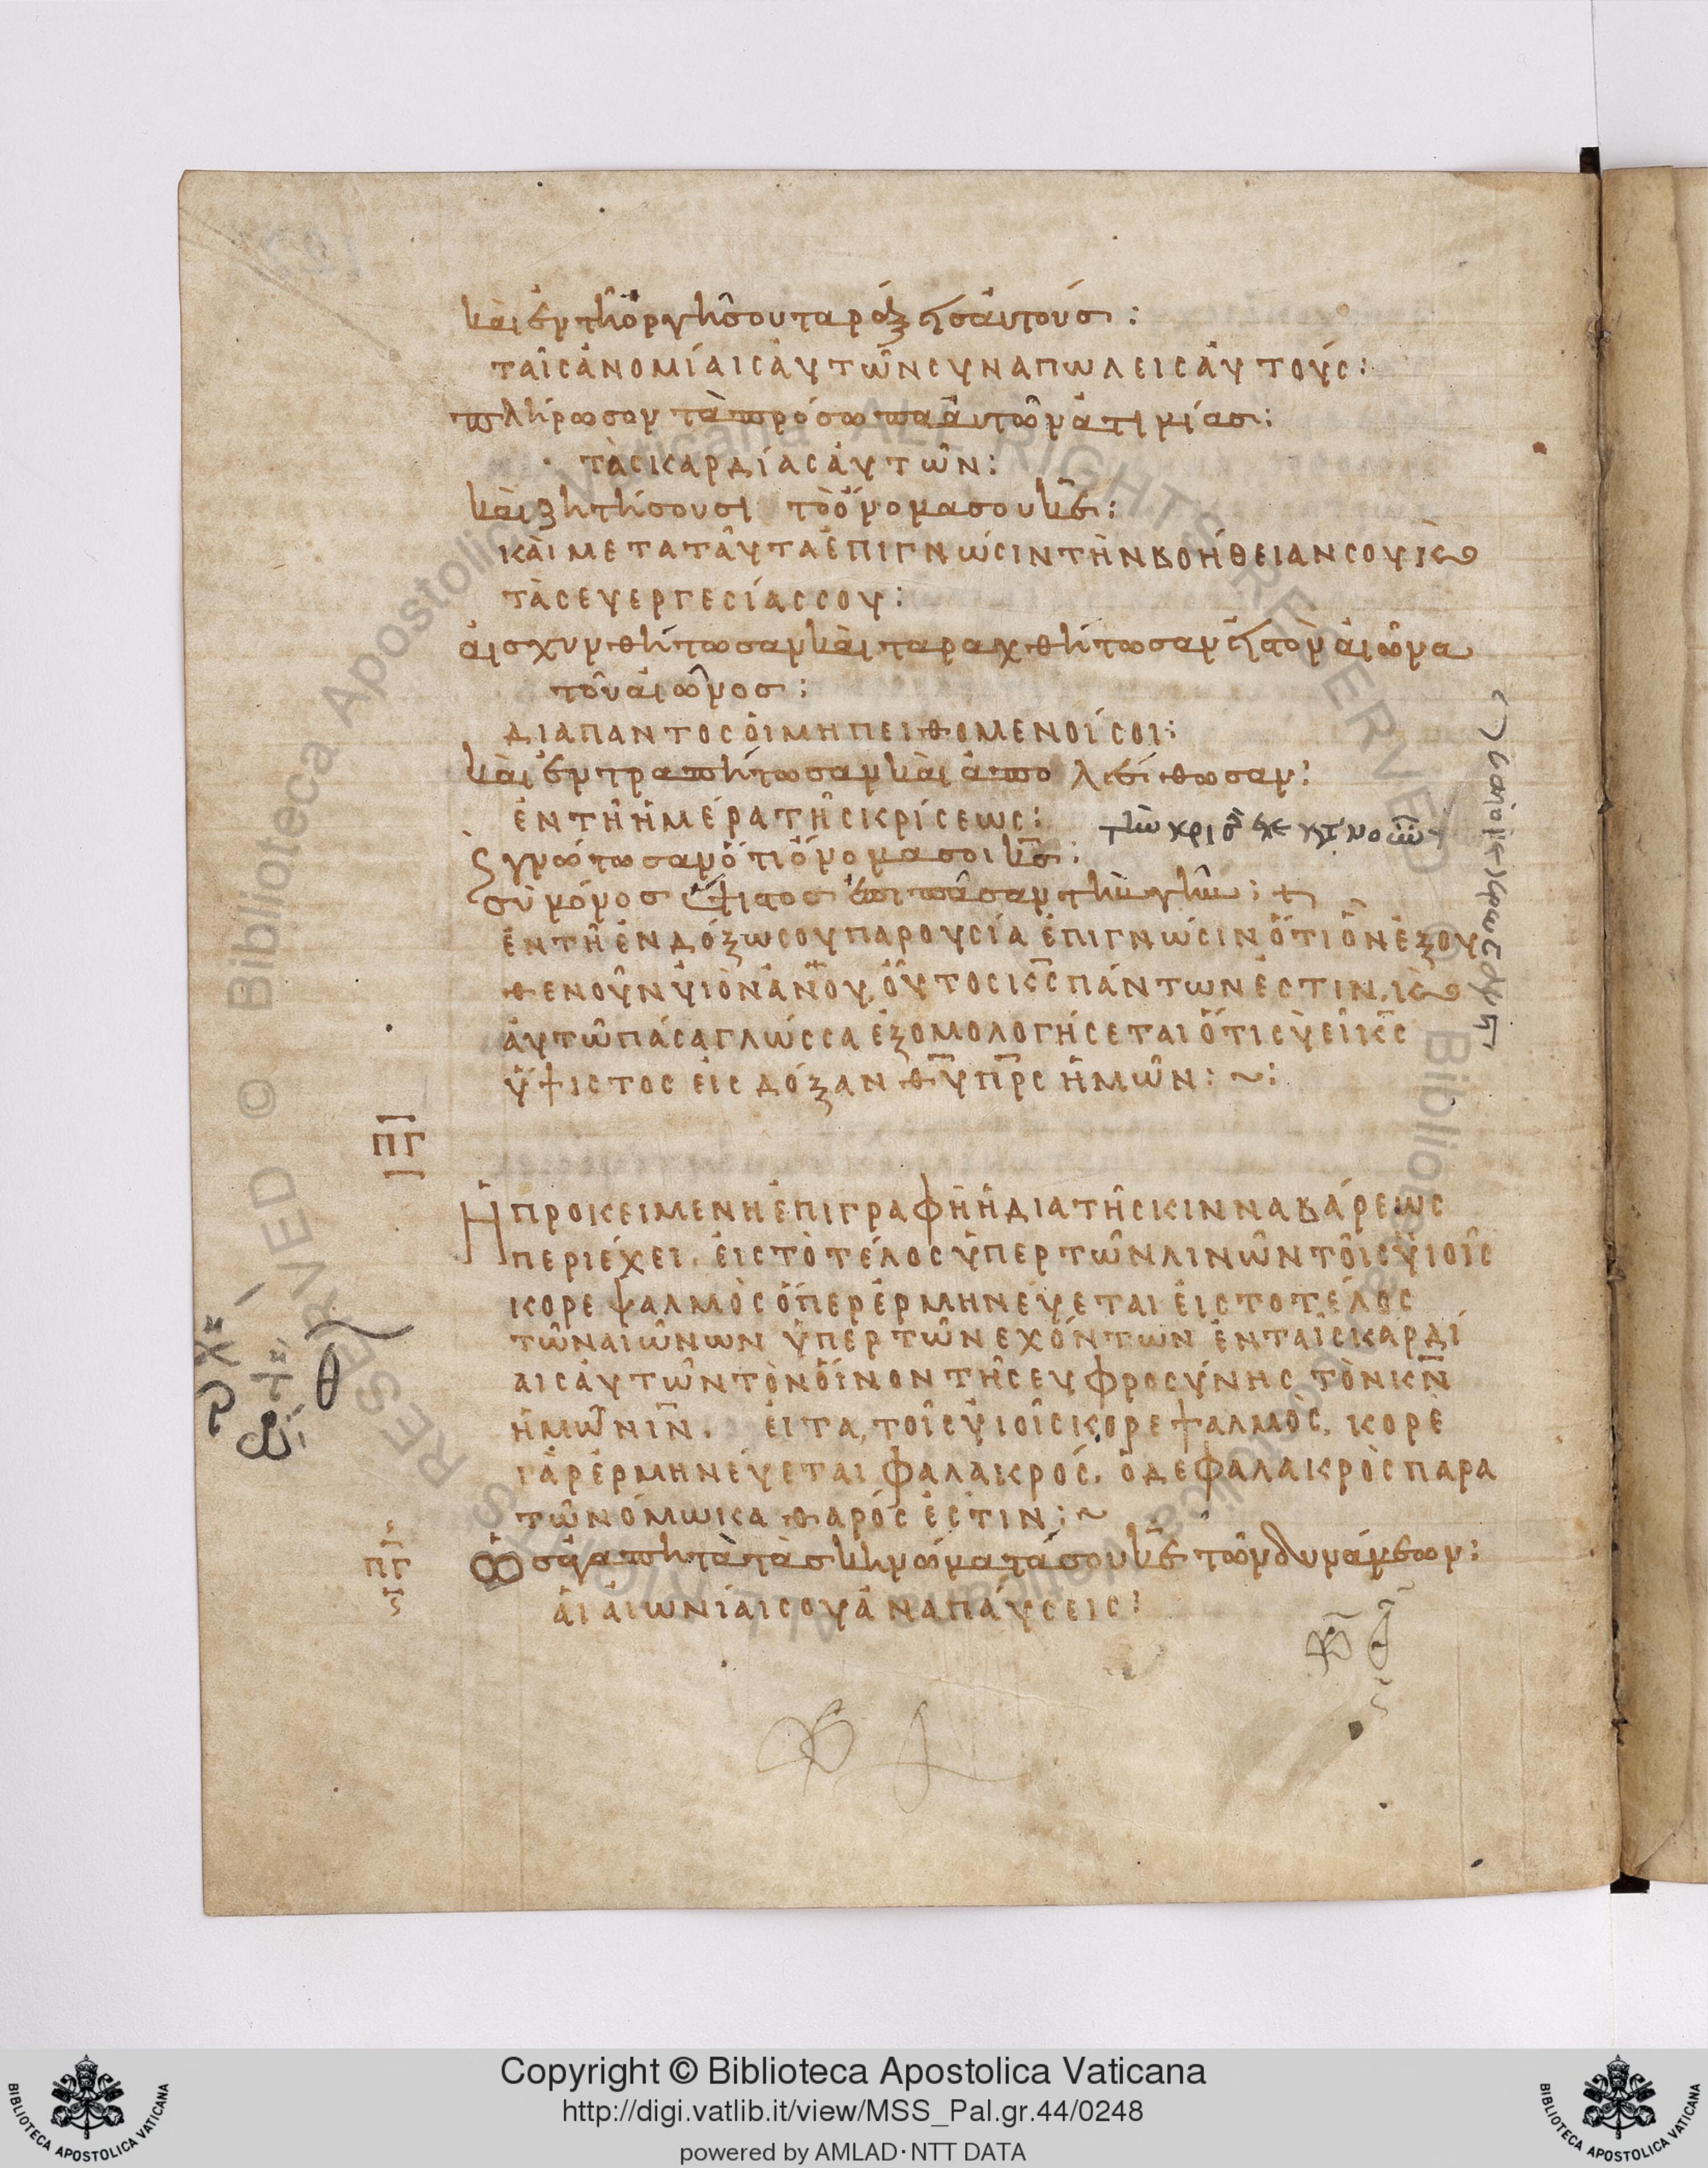 καὶ ἐν τῆ ὀργῆ σου ταράξεις αὐτούς:
ταῖς ἀνομίαις αὐτῶν συναπωλεις αὐτούς:
πλήρωσον τὰ πρόσωπα αὐτῶν ἀτιμίασ:
τὰς καρδίας αὐτῶν:
καὶ ζητήσουσι τὸ ὄνομα σου κ̅ε̅:
καὶ μετα ταῦτα ἐπιγνώσιν τὴν βοήθειαν σου κ(αὶ)
τὰς ευεργεσίας σου:
αἰσχυνθήτωσαν καὶ ταραχθήτωσαν εἰς τὸν αἰῶνα
τοῦ αἰῶνος:
διαπαντος οἱ μη πειθομενοί σοι:
καὶ ἐντραπήτωσαν καὶ ἀπολέσθωσαν:
ἐν τῆ ἡμέρα τῆς κρίσεως:
ϛ γνώτωσαν ὅτι ὄνομα σοι κ̅σ̅:
σὺ μόνος ὕψιστος ἐπι πᾶσαν τὴν γῆν: +
ἐν τῆ ἐνδόξω σου παρουσία ἐπιγνώσιν ὅτι ὃν ἐξου
θενουν υἱὸν ἀ̅ν̅ο̅υ̅, οὗτος κ̅ς̅ πάντων ἐστιν, κ(αὶ)
αὐτῶ πάσα γλώσσα ἐξομολογήσεται ὅτι σὺ εἶ κ̅ς̅
ὕψιστος εἰς δόξαν θ̅υ̅ π̅ρ̅ς̅ ἡμῶν: ~:
π̅γ̅
Ἡ προκειμενη ἐπιγραφὴ ἡ δια τῆς κινναβάρεως
περιέχει. εἰς τὸ τέλος ὑπερ τῶν λινῶν τοῖς υἱοῖς
κορε ψαλμὸς ὅπερ ἑρμηνεύεται εἰς το τέλος
τῶν αιώνων ὑπερ τῶν εχόντων ἐν ταῖς καρδί
αις αὐτῶν τὸν οἶνον τῆς ευφροσύνης τὸν κ̅ν̅
ἡμῶν ι̅ν̅. εἶτα, τοῖς υἱοῖς κορε ψαλμος, κορὲ
γὰρ ἑρμηνεύεται φαλακρός. ὁ δε φαλακρὸς παρα
τῶ νόμω καθαρός ἐστιν: ~
π̅γ̅
Ὡς ἀγαπητὰ τὰ σκηνώματά σου κ̅ε̅ τῶν δυνάμεων:
αἱ αἰωνίαι σου ἀναπαύσεις:
Copyright © Biblioteca Apostolica Vaticana
http://digi.vatlib.it/view/MSS_Pal.gr.44/0248
powered by AMLAD·NTT DATA